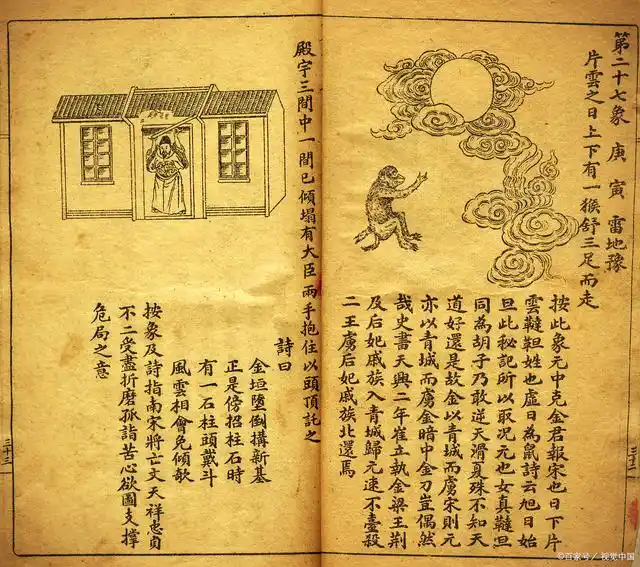 第二十七象 庚 寅 雷地豫
片雲之日上下有一猴舒三足而走
按此象元中克金君報宋也日下片
雲韃靼姓也虛日為鼠詩云旭日始
旦此秘記所以取况元也女真韃靼
同為胡子乃敢逆天滑夏殊不知天
道好還是故金以青城而虜宋則元
亦以青城而虜金暗中金刀豈偶然
哉史書天興二年崔立執金梁王荆
及后妃戚族入青城歸元速不臺殺
二王虜后妃戚族北還焉
殿宇三間中一間已傾塌有大臣兩手抱住以頭頂託之
詩曰
金垣墮倒搆新基
正是傍招柱石時
有一石柱頭戴斗
風雲相會免傾欹
按象及詩指南宋將亡文天祥忠貞
不二受盡折磨孤詣苦心欲圖支撐
危局之意
三十三
©百家号/视觉中国